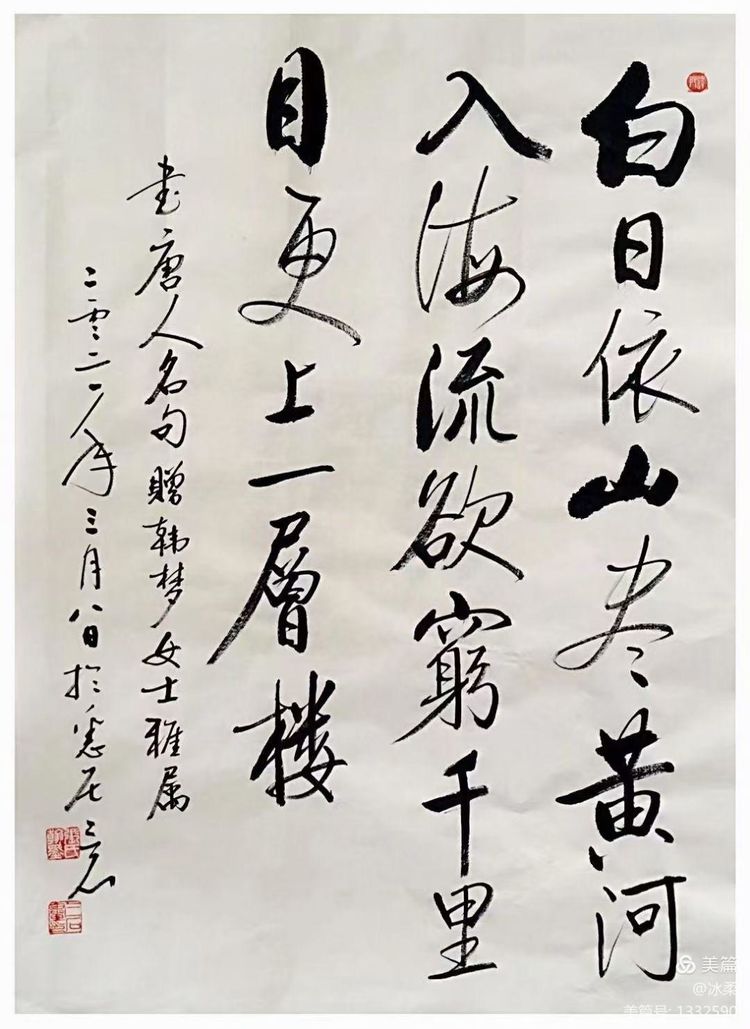 白日依山尽黄河
入海流欲窮千里
目更上一層楼
书唐人名句贈韩梦女士雅属
二零二一年三月八日於
美篇
@冰柔
美篇号: 1332590